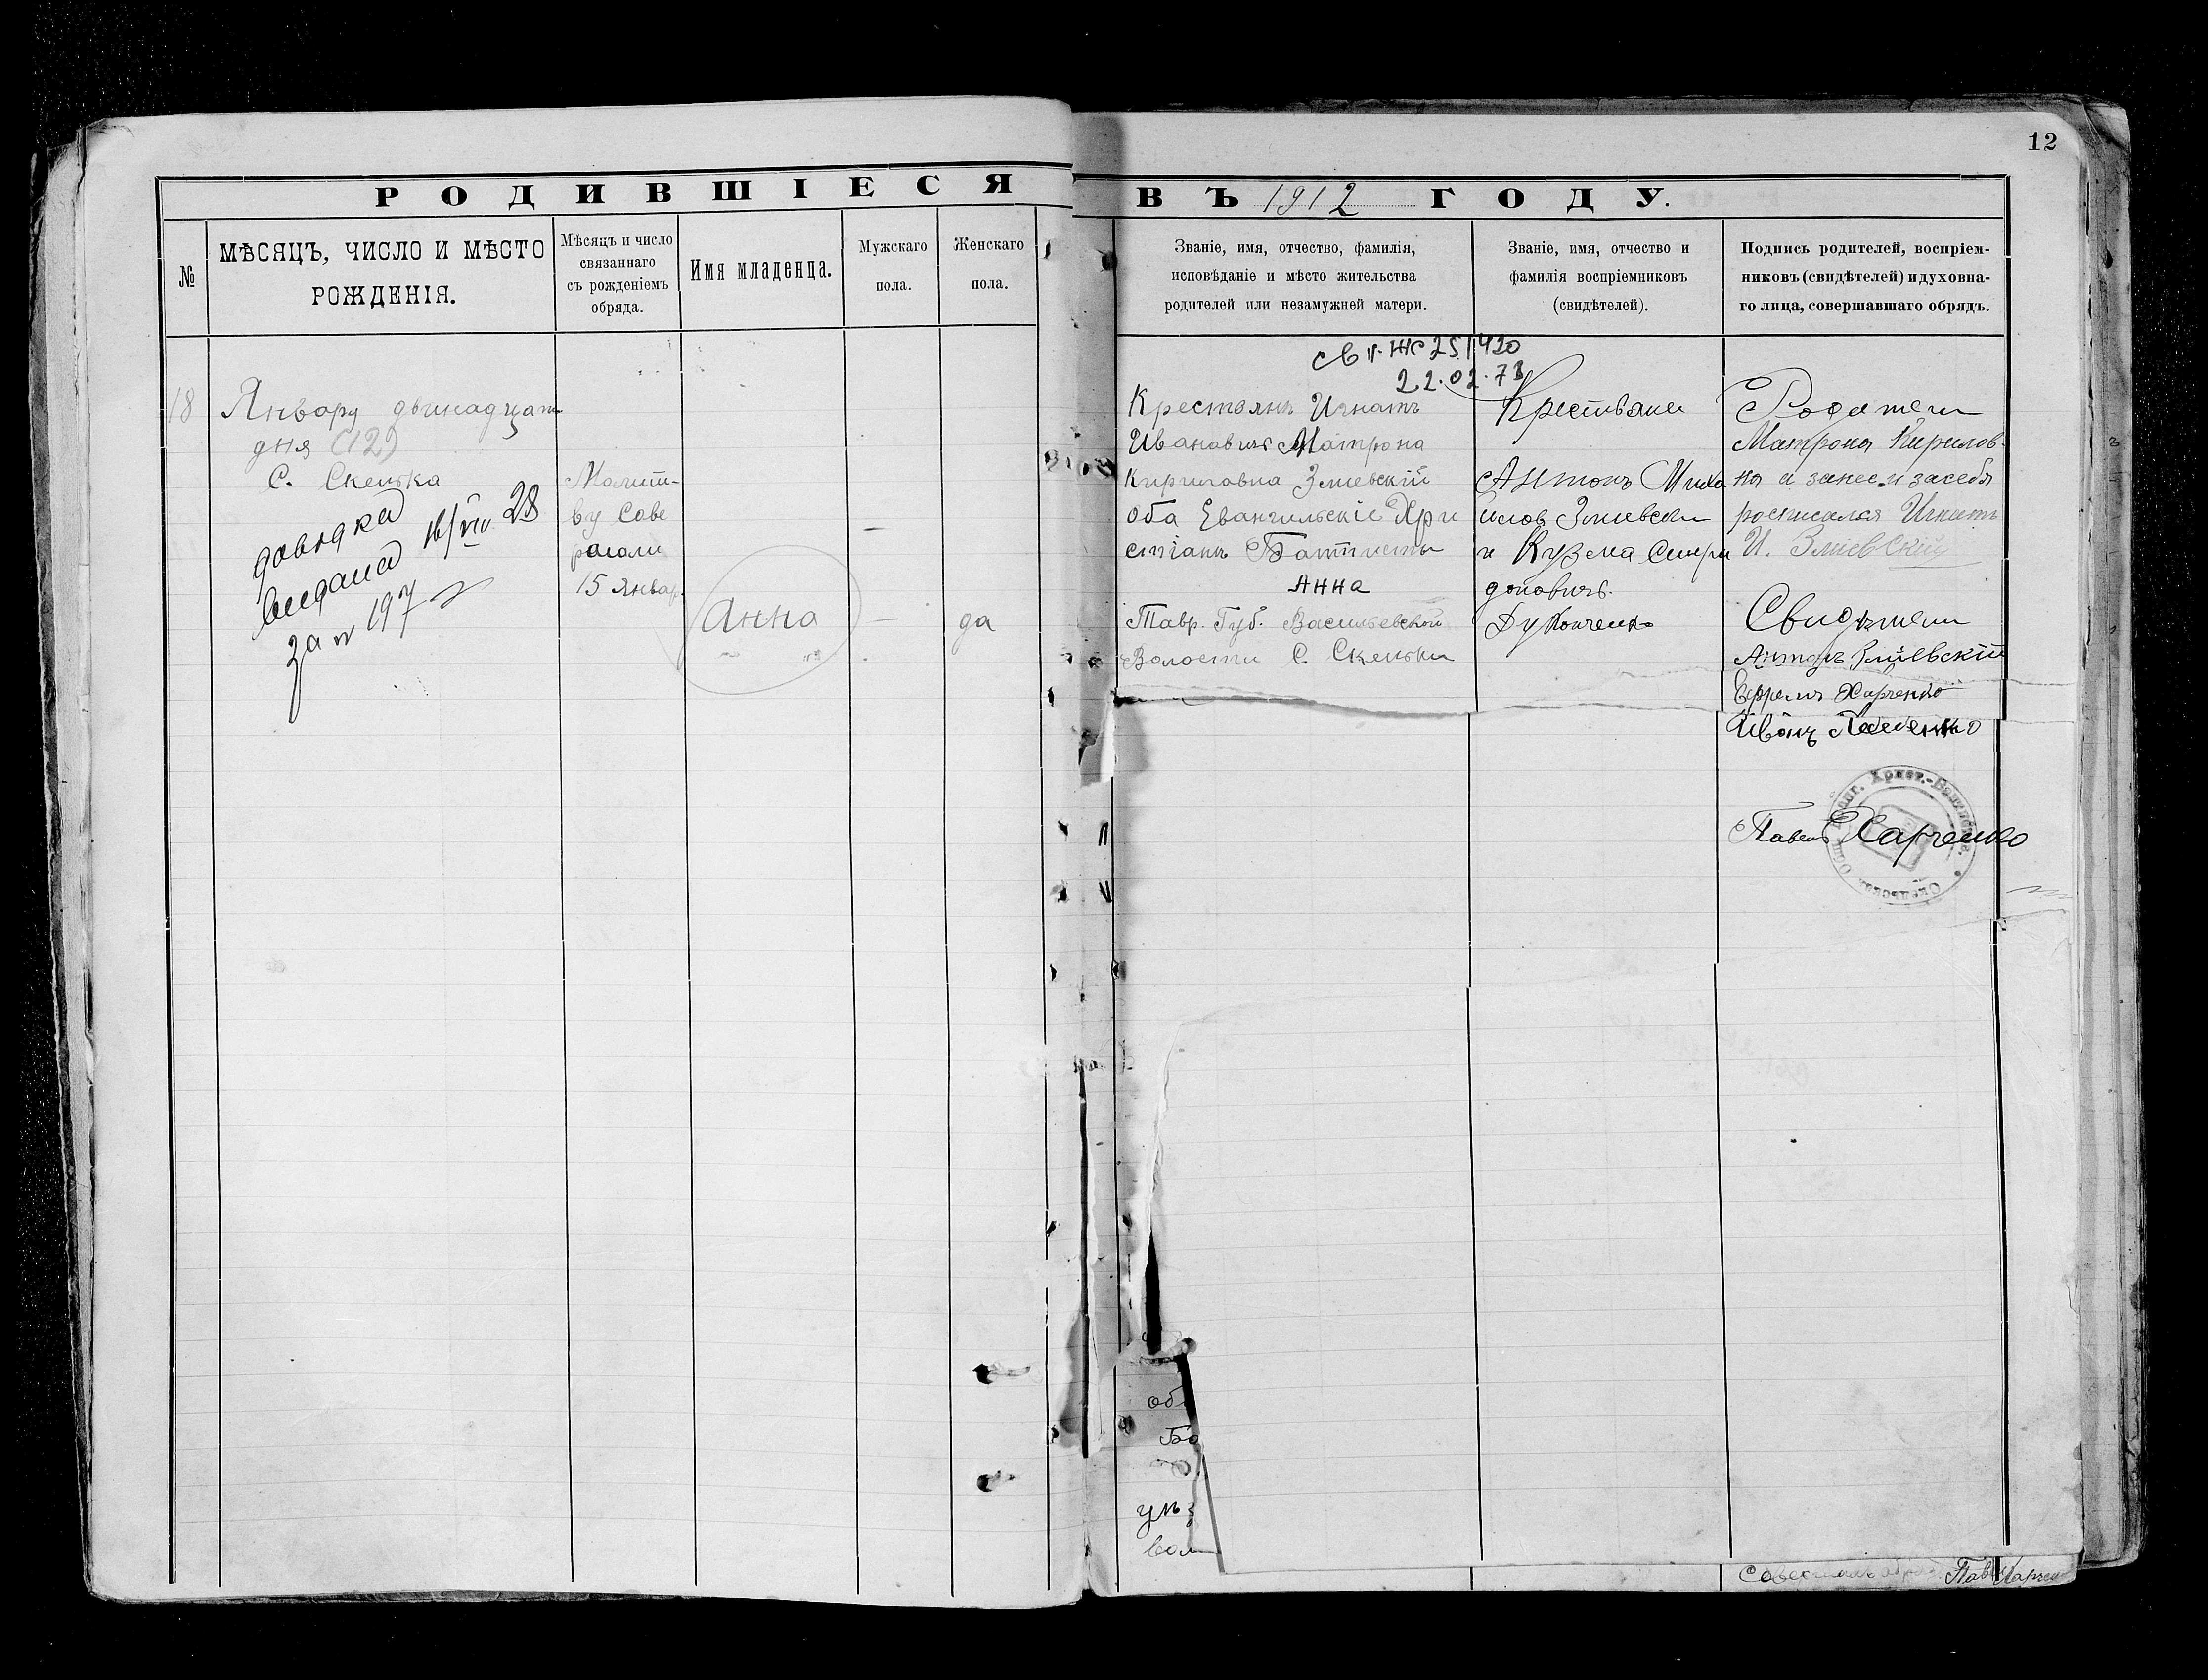 12
РОДИВШІЕСЯ
ВЪ 1912 ГОДУ.
№
МѢСЯЦЪ, ЧИСЛО И МѢСТО
РОЖДЕНІЯ.
Мѣсяцъ и число
связаннаго
съ рожденіемъ
обряда.
Имя младенца.
Мужскаго
пола.
Женскаго
пола.
Званіе, имя, отчество, фамилія,
исповѣданіе и мѣсто жительства
родителей или незамужней матери.
Званіе, имя, отчество и
фамилія воспріемниковъ
(свидѣтелей).
Подпись родителей, воспріем-
никовъ (свидѣтелей) и духовна-
го лица, совершавшаго обрядъ.
18
Январу двинадцат
дня (12)
С. Скелька
довідка
видана 16/VIII 28
за № 197
Молит-
ву Сове
рагали
15 Январ.
Анна
—
—
да
25/420
22.02.73
Крестянъ Игнатъ
Ивановичъ Матрона
Кириловна Змиевскій
оба Евангильскіе Хри
стіанъ Баттисты
АННА
Тавр. Губ. Васильевской
Волости С. Скельки
Крестьяни
Антонъ Миха
илов Змиевски
и Кузма Спири
доновичъ
Родители
Матрона Кирилов-
на а за нее и за себя
росписался Игнатъ
И. Змиевский
Свидѣтели
Антонъ Зміевскій
Ефремъ Харченко
Иванъ
Павелъ Харченко
Христ.-
об
Бо
уѣз
вол
Павелъ Харченко